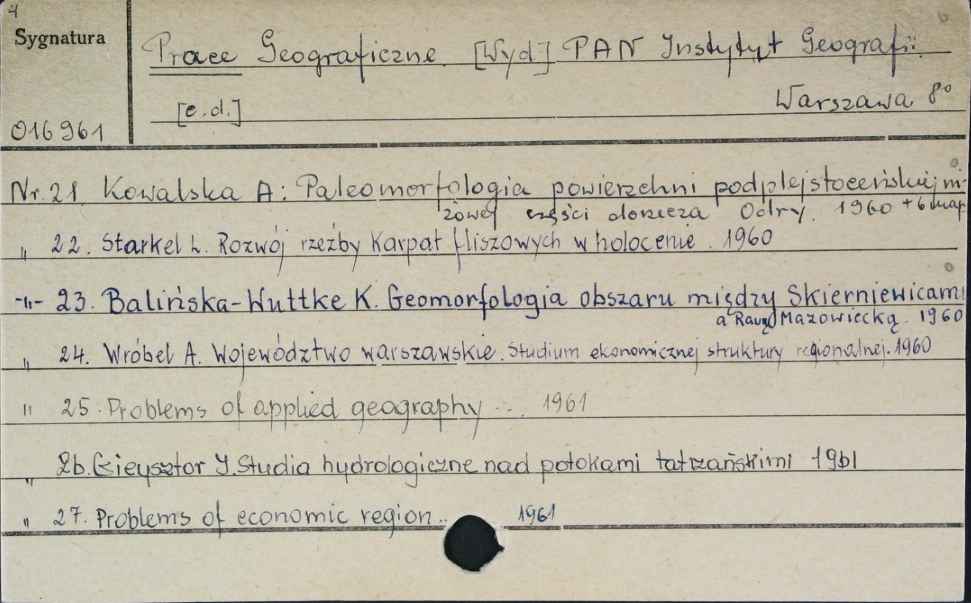 4
Sygnatura
Prace Geograficzne. [Wyd] PAN Instytyt Geografii.
[e.d.] Warszawa 8°
016961
Nr. 21. Kowalska A: Paleomorfologia powierzchni podplejstoceńskiej ni-
żowej części dorzecza Odry. 1960 + 6 map
" 22. Starkel L. Rozwój rzeźby Karpat fliszowych w holocenie. 1960
-"- 23. Balińska-Wuttke K. Geomorfologia obszaru między Skierniewicami
a Rawą Mazowiecką. 1960
" 24. Wróbel A. Województwo warszawskie. Studium ekonomicznej struktury regionalnej. 1960
" 25. Problems of applied geography ... 1961
" 26. Gieysztor I. Studia hydrologiczne nad potokami tatrzańskimi 1961
" 27. Problems of economic region.. 1961